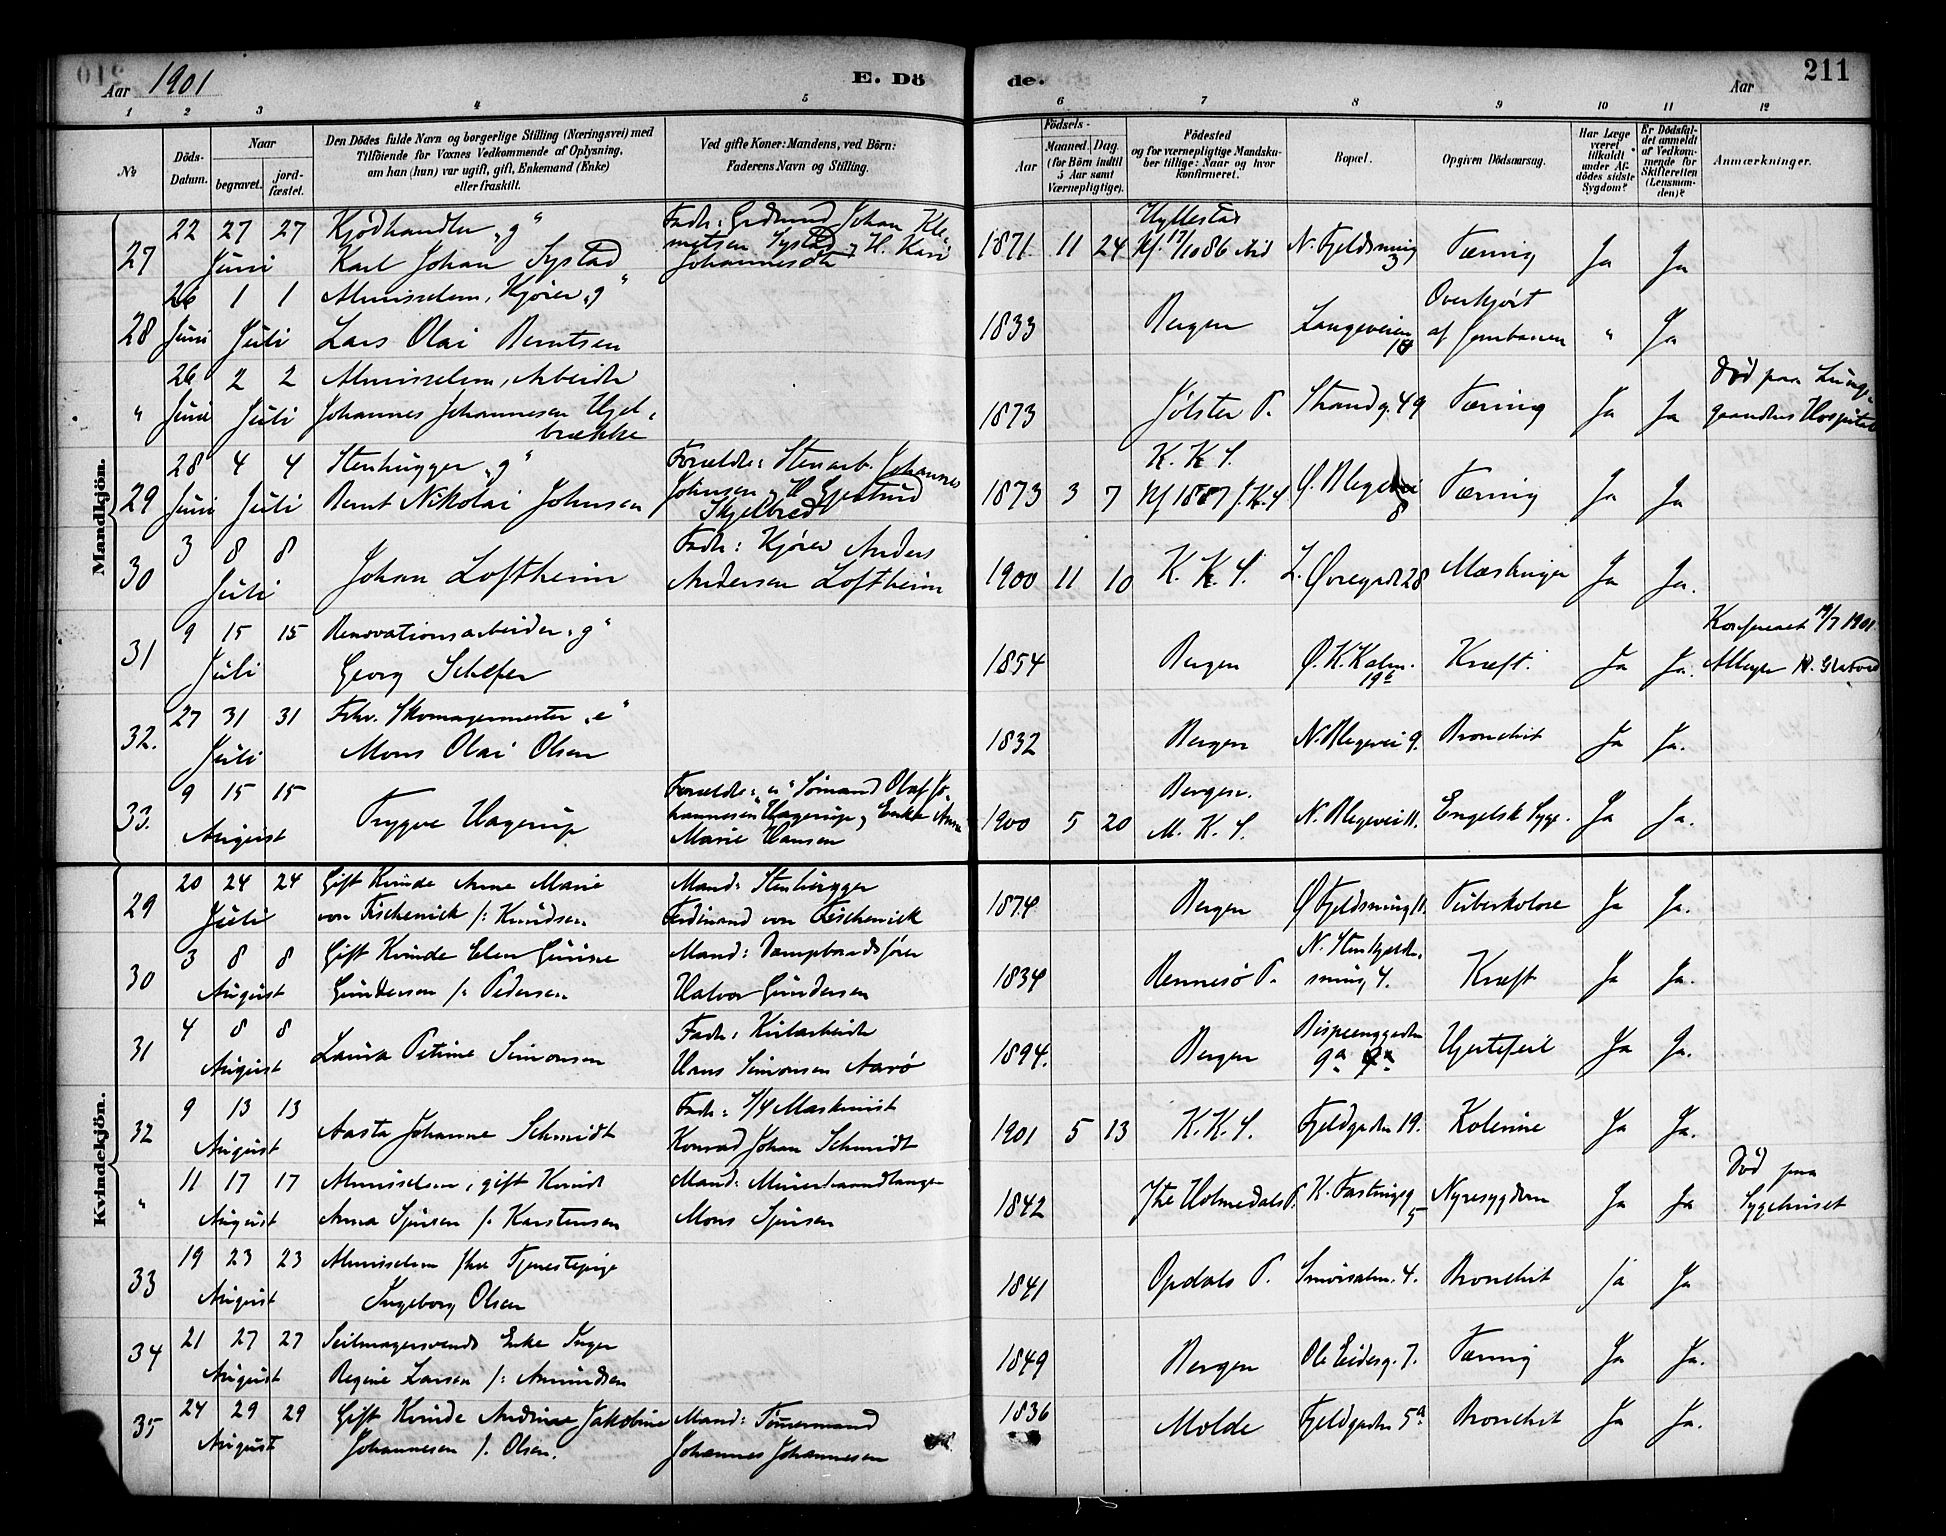 Aar 1901
E. Dö
de.
Aar
211
1 2 3 4 5 6 7 8 9 10 11 12
№
Döds-
Datum.
Naar
begravet.
jord-
fæstet.
Den Dödes fulde Navn og borgerlige Stilling (Næringsvei) med
Tilföiende for Voxnes Vedkommende af Oplysning,
om han (hun) var ugift, gift, Enkemand (Enke)
eller fraskilt.
Ved gifte Koner: Mandens, ved Börn:
Faderens Navn og Stilling.
Födsels-
Aar
Maaned. Dag.
(for Börn indtil
5 Aar samt
Værnepligtige).
Födested
og for værnepligtige Mandsku-
ber tillige: Naar og hvor
konfirmeret.
Bopæl.
Opgiven Dödsaarsag.
Har Læge
været
tilkaldt
under Af-
dödes sidste
Sygdom?
Er Dödsfal-
det anmeldt
af Vedkom-
mende for
Skifteretten
(Lensman-
den)?
Anmærkninger.
Mandkjön.
27
22 27 27
Juni
Kjødhandler „g“
Karl Johan Systad
Fader: Johan Kle-
metsen Systad, H. Kari
Johannesdtr
1871 11 24
Hyllestad
N. Fjeldsmug
3
Tæring
Ja Ja
28
26 1 1
Juni Juli
Almisselem, Kjører „g“
Lars Olai Berntsen
1833
Bergen
Langeveien
Overkjørt
af Jernbanen
" Ja
"
26 2 2
Juni Juli
Almisselem, Arbeider
Johannes Johannesen Hjel-
brække
1873
Jølster P.
Strandg. 49
Tæring
Ja Ja
Død paa Lunge-
gaardens Hospital
29
28 4 4
Juni Juli
Stenhugger „g“
Bernt Nikolai Johnsen
Forældre: Stenarb. Johannes
Johnsen, H.
Skjelbred
1873 3 7
K. K. S.
Ø. Blegevei
8
Tæring
Ja Ja
30
3 8 8
Juli
Johan Loftheim
Fader: Kjører Anders
Andersen Loftheim
1900 11 10
K. K. S.
L. Øvregade 28
Mæslinger
Ja Ja.
31
9 15 15
Juli
Renovationsarbeider „g“
Georg
1854
Bergen
Ø. K. Kalm.
Kræft.
Ja Ja.
32.
27 31 31
Juli
Fhv. Skomagermester „e“
Mons Olai Olsen
1832
Bergen
N. Blegevei 9.
Bronchit
Ja Ja.
33.
9 15 15
August
Trygve Hagerup
Forældre: „u“ Sömand Olaf Jo-
hannesen Hagerup, Enke Anna
Marie Hansen
1900 5 20
Bergen.
M. K. S.
N. Blegevei 11.
Engelsk Syge.
Ja Ja.
Kvindekjön.
29
20 24 24
Juli
Gift Kvinde Anna Marie
von Fischenick f: Knudsen
Mand: Stenhugger
Ferdinand von Fischenick
1874
Bergen
Ø Fjeldsmug 11.
Tuberkolose
Ja Ja.
30
3 8 8
August
Gift Kvinde Elen Gurine
Gundersen f. Pedersen
Mand: Dampbaadsfører
Halvor Gundersen
1834
Rennesö P.
N. Stenkjelder-
smug 4.
Kræft
Ja Ja.
31
4 8 8
August
Laura Petrine Simonsen
Fader: Kularbeider
Hans Simonsen Aarø
1894.
Bergen
Bispeenggaden
9a
Hjertefeil
Ja Ja.
32
9 13 13
August
Aasta Johanne Schmidt
Fader: Maskinist
Konrad Johan Schmidt
1901 5 13
K. K. S.
Fjeldgaden 19.
Kolerine
Ja Ja.
"
11 17 17
August
Almisselem, gift Kvinde
Anna Sjursen f. Karstensen
Mand: Murerhaandlanger
Mons Sjursen
1842
Ytre Holmedals P.
K. Fastingsg
5
Nyresygdom
Ja Ja
Død paa
Sygehuset
33
19 23 23
August
Almisselem fhv Tjenestepige
Ingeborg Olsen
1841
Opdals P.
Smörsalm. 4.
Bronchit
ja Ja
34
21 27 27
August
Seilmagersvends Enke Inger
Regine Larsen f: Amundsen
1849
Bergen
Ole Eidesg. 7.
Tæring
Ja Ja.
35
24 29 29
August
Gift Kvinde Andrine Jakobine
Johannesen f. Olsen.
Mand: Tömmermand
Johannes Johannesen
1836
Molde
Fjeldgaden 5a
Bronchit
Ja Ja.